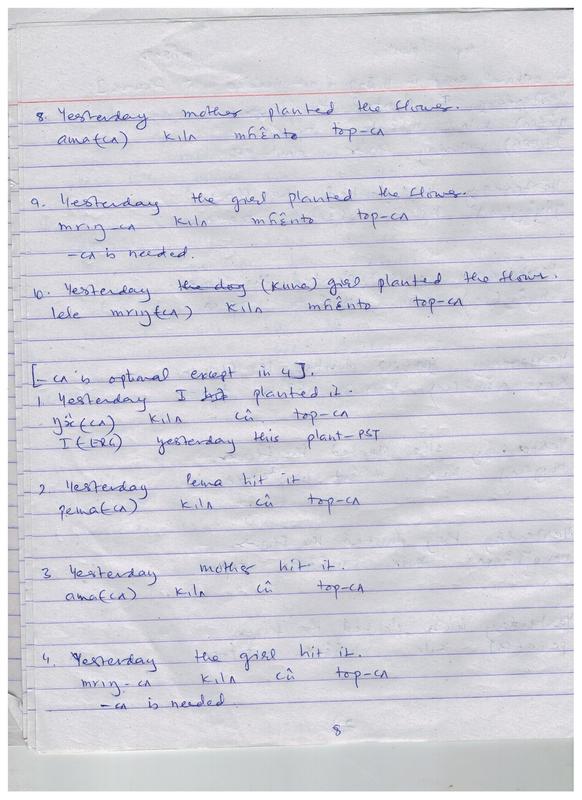 8. Yesterday mother planted the flower.
ama(-cʌ) kilʌ mɦɛ̂nto top-cʌ
9. Yesterday the girl planted the flower.
mriŋ-cʌ kilʌ mɦɛ̂nto top-cʌ
-cʌ is needed.
10. Yesterday the dog (Kuna) girl planted the flower.
lele mriŋ(-cʌ) kilʌ mɦɛ̂nto top-cʌ
[-cʌ is optional except in 4].
1. Yesterday I planted it.
(-cʌ) kilʌ cû top-cʌ
I(-ERG) yesterday this plant-PST
2. Yesterday Pema hit it
pema(-cʌ) kilʌ cû top-cʌ
3. Yesterday mother hit it.
ama(-cʌ) kilʌ cû top-cʌ
4. Yesterday the girl hit it.
mriŋ-cʌ kilʌ cû top-cʌ
-cʌ is needed.
8